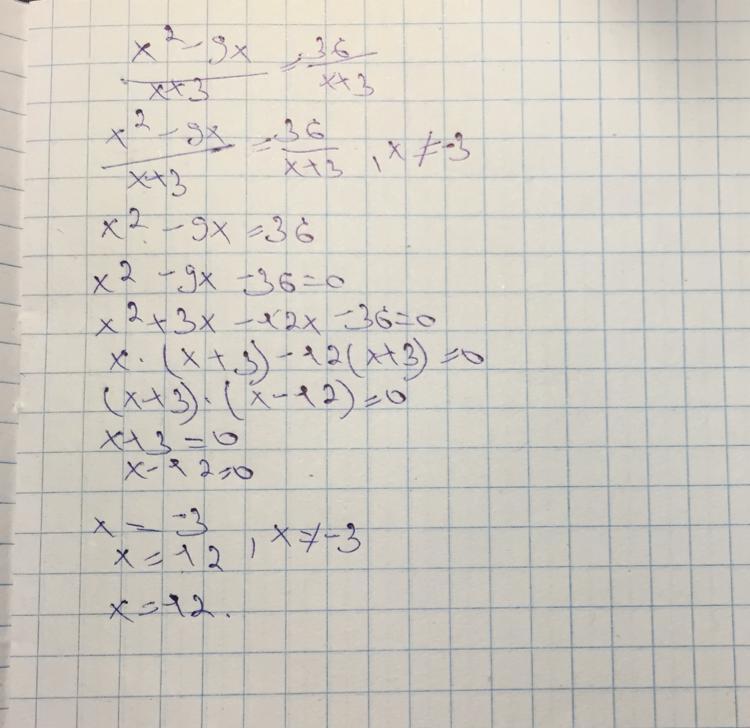 x² - 9x / x+3 = 36 / x+3
x² - 9x / x+3 = 36 / x+3 , x ≠ -3
x² - 9x = 36
x² - 9x - 36 = 0
x² + 3x - 12x - 36 = 0
x · (x + 3) - 12(x+3) = 0
(x+3) · (x - 12) = 0
x+3 = 0
x - 12 = 0
x = -3
x = 12 , x ≠ -3
x = 12.